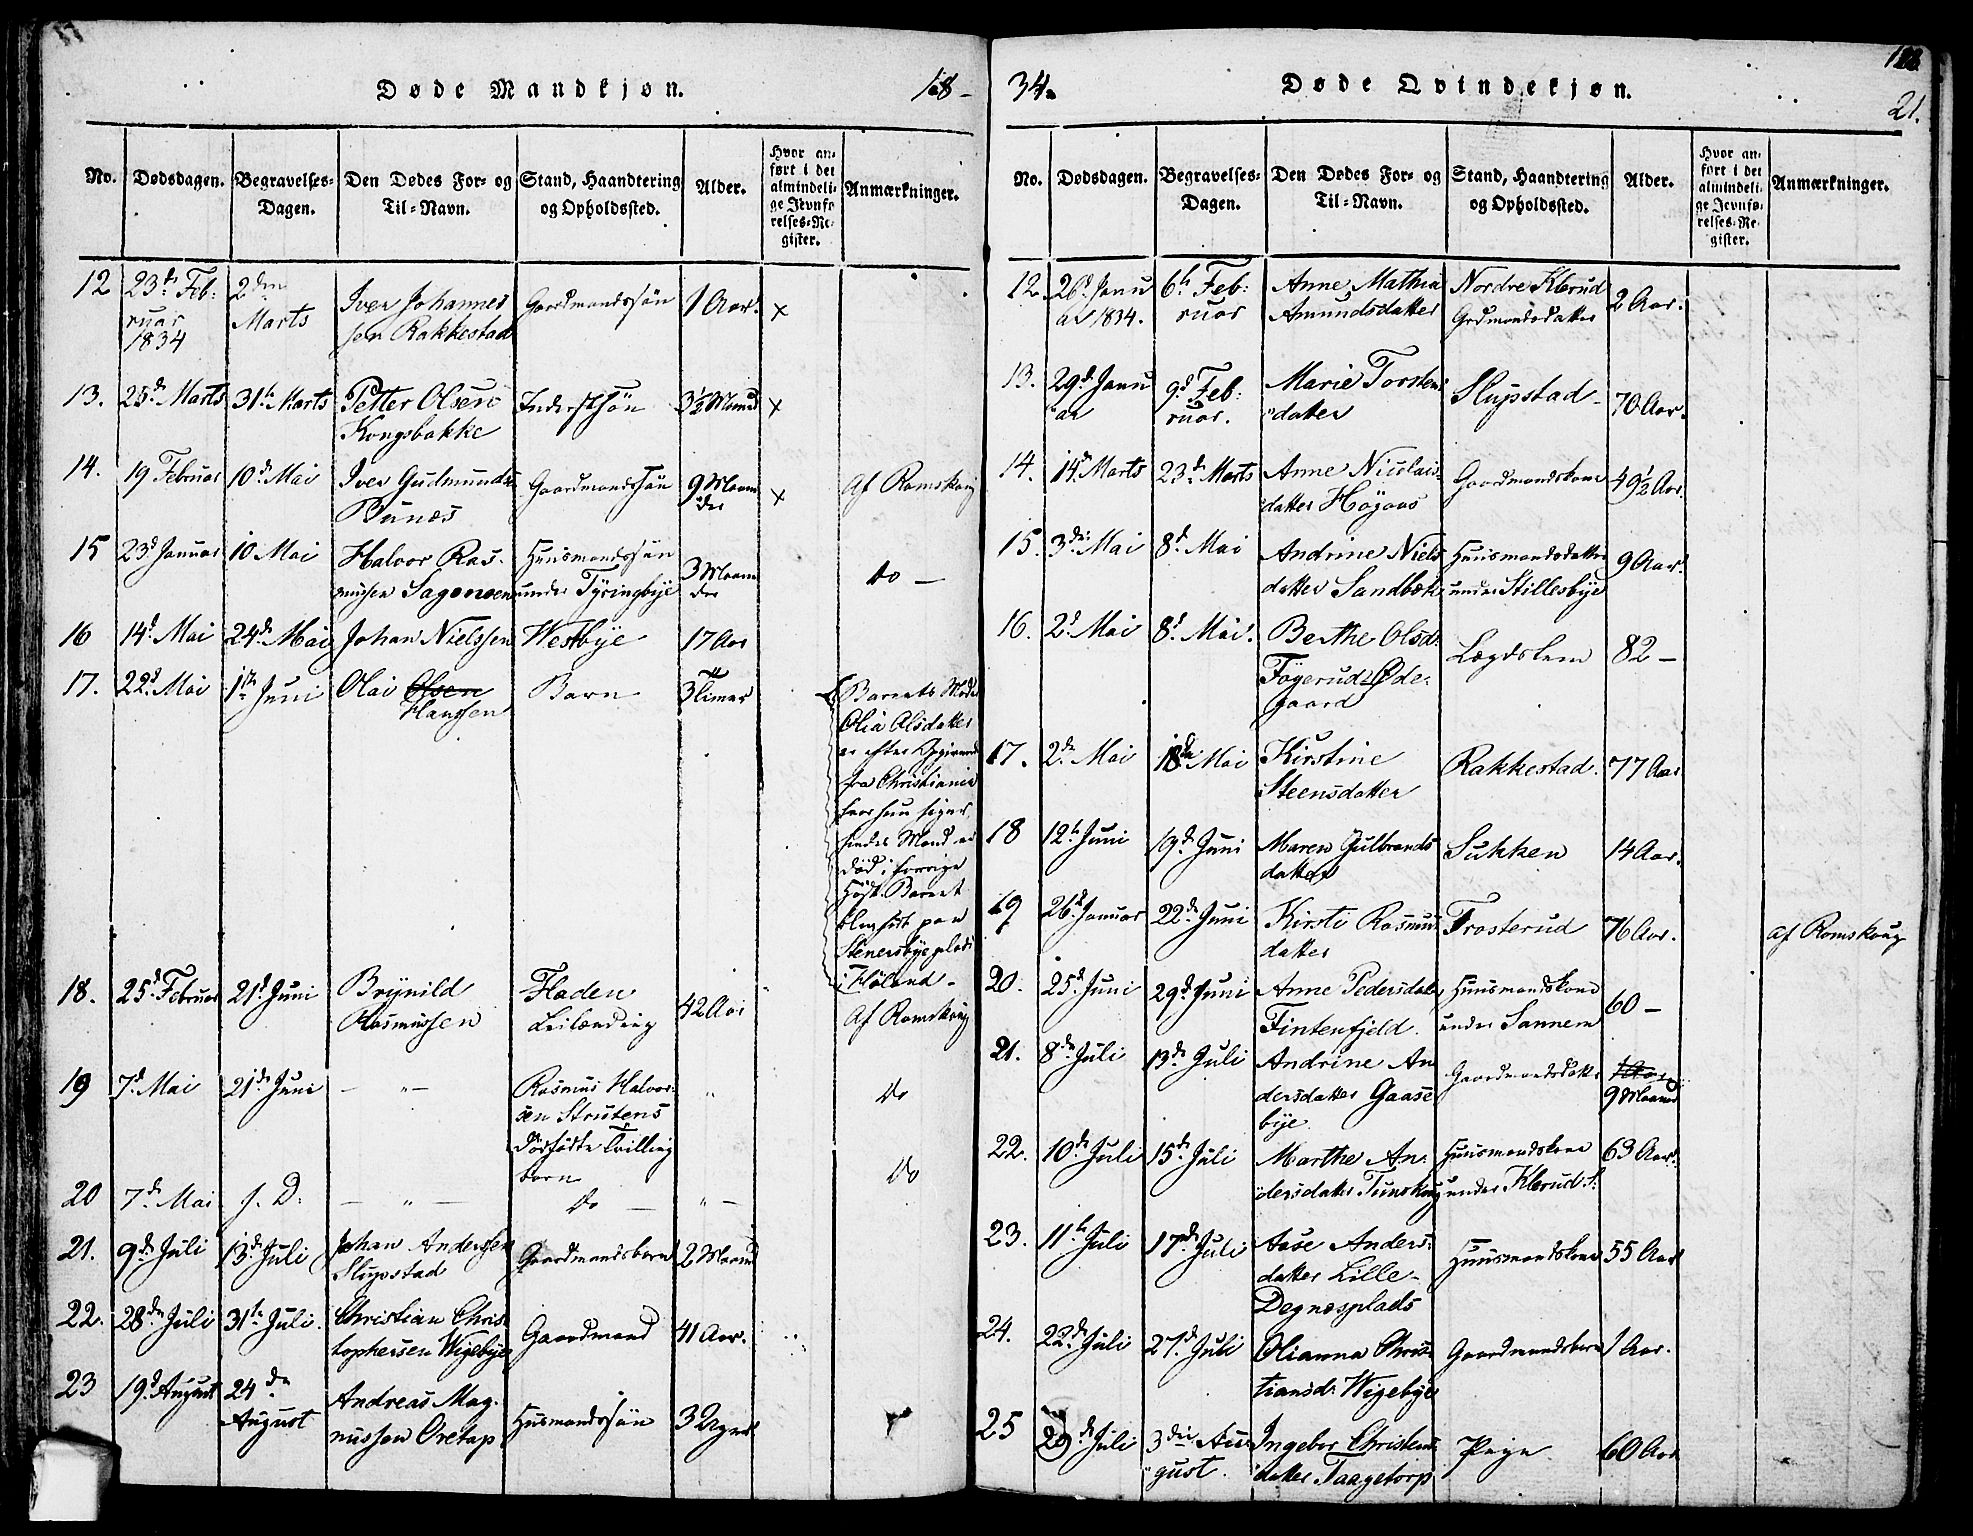 Døde Mandkjøn.
18-
No.
Dødsdagen.
Begravelses-
Dagen.
Den Dødes For- og
Til-Navn.
Stand, Haandtering
og Opholdssted.
Alder.
Hvor an-
ført i det
almindeli-
ge Jevnfø-
relses-Re-
gister.
Anmærkninger.
12
23de Feb:
ruar
1834
2den
Marts
Iver Johannes
sen Rakkestad
Gaardmandssøn
1 Aar.
x
13.
25de Marts
31te Marts
Petter Olsen
Kongsbakke
Inderstsøn
3½ Maned
x
14.
19 Februar
10de Mai
Iver Gudmunds
Bunæs
Gaardmandssøn
9 Maane
der
x
Af Romskoug
15
23d Januar
10 Mai
Halvor Ras-
mussen Sagenæen
Huusmandssøn
under Tyringbye
3 Maane
der
do -
16
14d. Mai
24de Mai
Johan Nielssen
Westbye
17 Aar
17.
22d. Mai
1ste Juni
Olai Olsen
Hanssen
Barn
3 Timer
Barnets Moder
Olia Olsdatter
er efter Opgivende
fra Christiania
hvor hun siger
hendes Mand er
død i forrige
Høst. Barnet
blev født paa
Stenersbyeplads
i Høland -
18.
25d. Februar
21d. Juni
Brynild
Rasmussen
Floden
Leilænding
42 Aar
Af Romskoug
19
7d. Mai
21de Juni
- " -
Rasmus Halvor-
sen Strutens
dødfødte Tvilling
børn
"
Do
20
7de Mai
s. D:
- " -
do -
" -
Do
21.
9de Juli
13de Juli
Johan Anderssen
Slupstad
Gaardmandsbarn
2 Maaned
22.
28de Juli
31te Juli.
Christian Chris
tophersen Wigebye
Gaardmand
41 Aar.
23
19d. August
24de
August
Andreas Mag-
nussen Oretap
Husmandssøn
3 Uger
34.
Døde Qvindekjøn.
21.
No.
Dødsdagen.
Begravelses-
Dagen.
Den Dødes For- og
Til-Navn.
Stand, Haandtering
og Opholdssted.
Alder.
Hvor an-
ført i det
almindeli-
ge Jevnfø-
relses-Re-
gister.
Anmærkninger.
12.
26d. Janu
ar 1834.
6te Feb:
ruar
Anne Mathia
Amundsdatter
Nordre Klerud
Grdmandsdatter
2 Aar.
13.
29d. Janu
ar
9d. Feb:
ruar.
Marie Torstens
datter
Slupstad
70 Aar.
14.
14de Marts
23de Marts
Anne Nicolais
datter Høgaas
Gaardmandskone
49½ Aar.
15.
3die Mai
8d. Mai
Andrine Niels
datter Sandbæk
Huusmandsdatter
under Stillesbye
9 Aar.
16.
2d. Mai
8d. Mai.
Berthe Olsd.
Føgerud=Øde-
gaard
Lægdslem
82 -
17.
2de Mai
18de Mai
Kirstine
Steensdatter
Rakkestad.
77 Aar
18
12te Juni
19de Juni
Maren Gulbrands
datter
Sukken
14 Aar.
19
26d. Januar
22de Juni
Kirsti Rasmus
datter
Trosterud
76 Aar.
af Romskoug
20.
25de Juni
29de Juni
Anne Pedersdatr
Fintenfjeld.
Huusmandskone
under Sannem
60 -
21.
8de Juli
13de Juli
Andrine An
dersdatter Gaase
bye
Gaardmandsdatter
9 Maaned
22.
10de Juli
15de Juli
Marthe An-
dersdatter Tunskoug
Huusmandskone
under Klerud S:
63 Aar.
23.
11te Juli
17de Juli
Aase Anders-
datter Lille-
Degnæsplads
Huusmandskone
55 Aar
24.
22de Juli
27de Juli
Olianna Chris-
tiansd: Wigebye
Gaardmandsbarn
1 Aar.
25
29de Juli
3die Au-
gust.
Ingebor Christens
datter Taagetorp
Pige
60 Aar